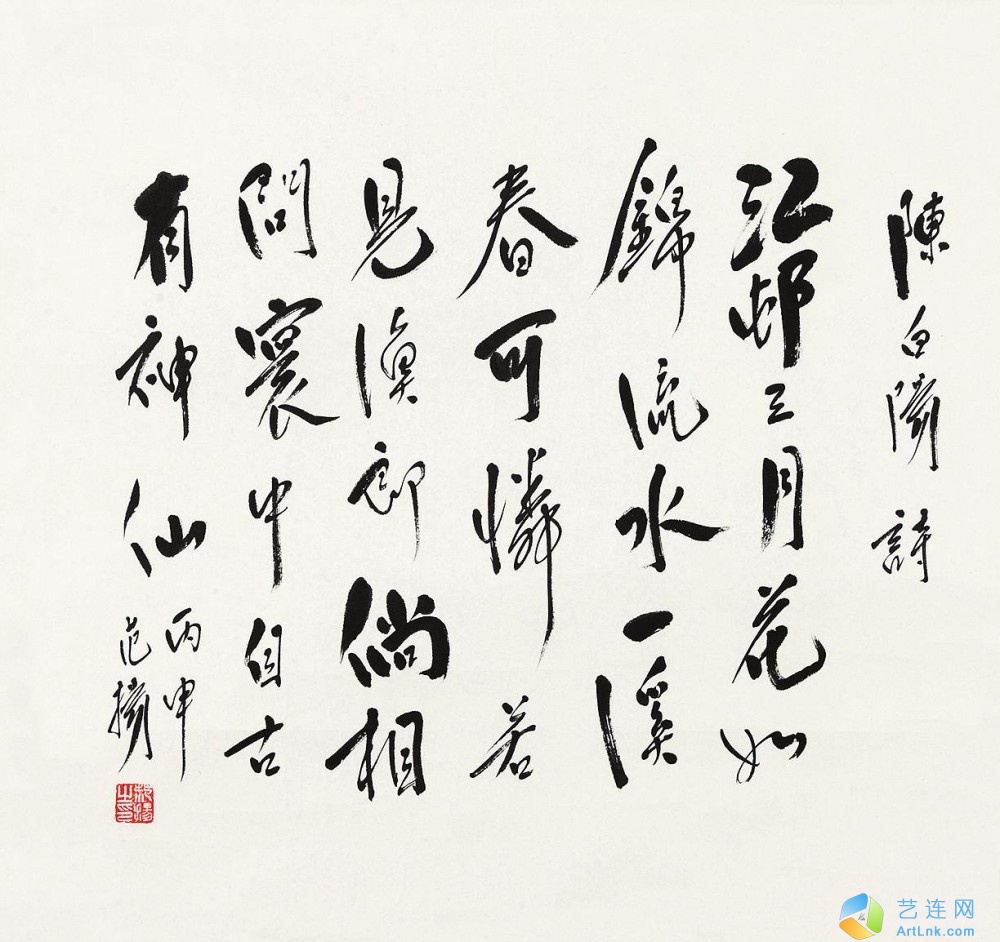 陳白陽詩
江邨三月花如
錦流水一溪
春可憐若
見漁郎倘相
問寰中自古
有神仙
丙申
范揚
艺连网
ArtLnk.com